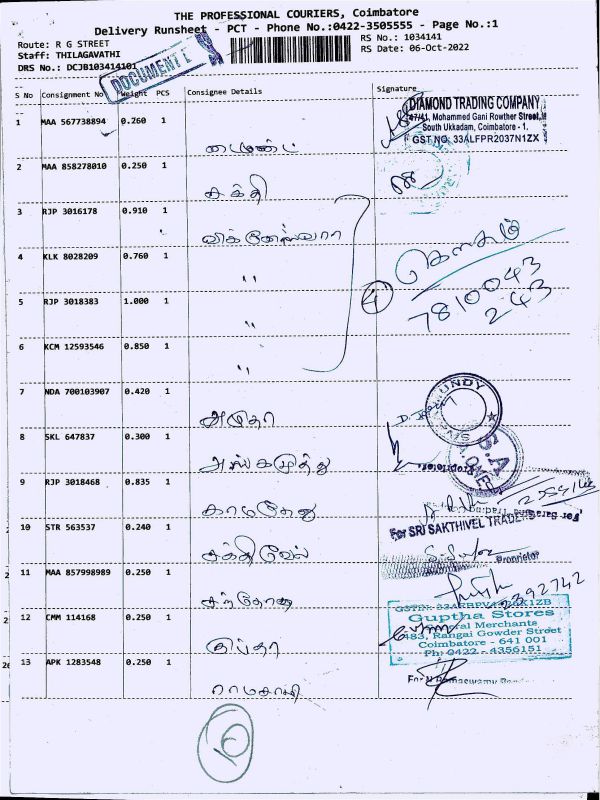 THE PROFESSIONAL COURIERS, Coimbatore
Delivery Runsheet - PCT - Phone No.:0422-3505555 - Page No.:1
Route: R G STREET
RS No.: 1034141
Staff: THILAGAVATHI
RS Date: 06-Oct-2022
DRS No.: DCJB103414101
DOCUMENT
S No Consignment No Weight PCS Consignee Details Signature
1 MAA 567738894 0.260 1
DIAMOND TRADING COMPANY
47/41, Mohammed Gani Rowther Street,
South Ukkadam, Coimbatore - 1.
GST NO: 33ALFPR2037N1ZX
டைமண்ட்
2 MAA 858278010 0.250 1
சக்தி
3 RJP 3016178 0.910 1
விக்னேஸ்வரா
4 KLK 8028209 0.760 1
"
4
கௌதம்
7810043
243
5 RJP 3018383 1.000 1
"
6 KCM 12593546 0.850 1
"
7 NDA 700103907 0.420 1
அமுதா
8 SKL 647837 0.300 1
அங்கமுத்து
Proprietor
9 RJP 3018468 0.835 1
காமதேனு
10 STR 563537 0.240 1
For SRI SAKTHIVEL TRADERS
சக்திவேல்
Proprietor
11 MAA 857998989 0.250 1
2392742
12 CMM 114168 0.250 1
Guptha Stores
General Merchants
483, Rangai Gowder Street
Coimbatore - 641 001
Ph: 0422 - 4356151
குப்தா
13 APK 1283548 0.250 1
ராமசாமி